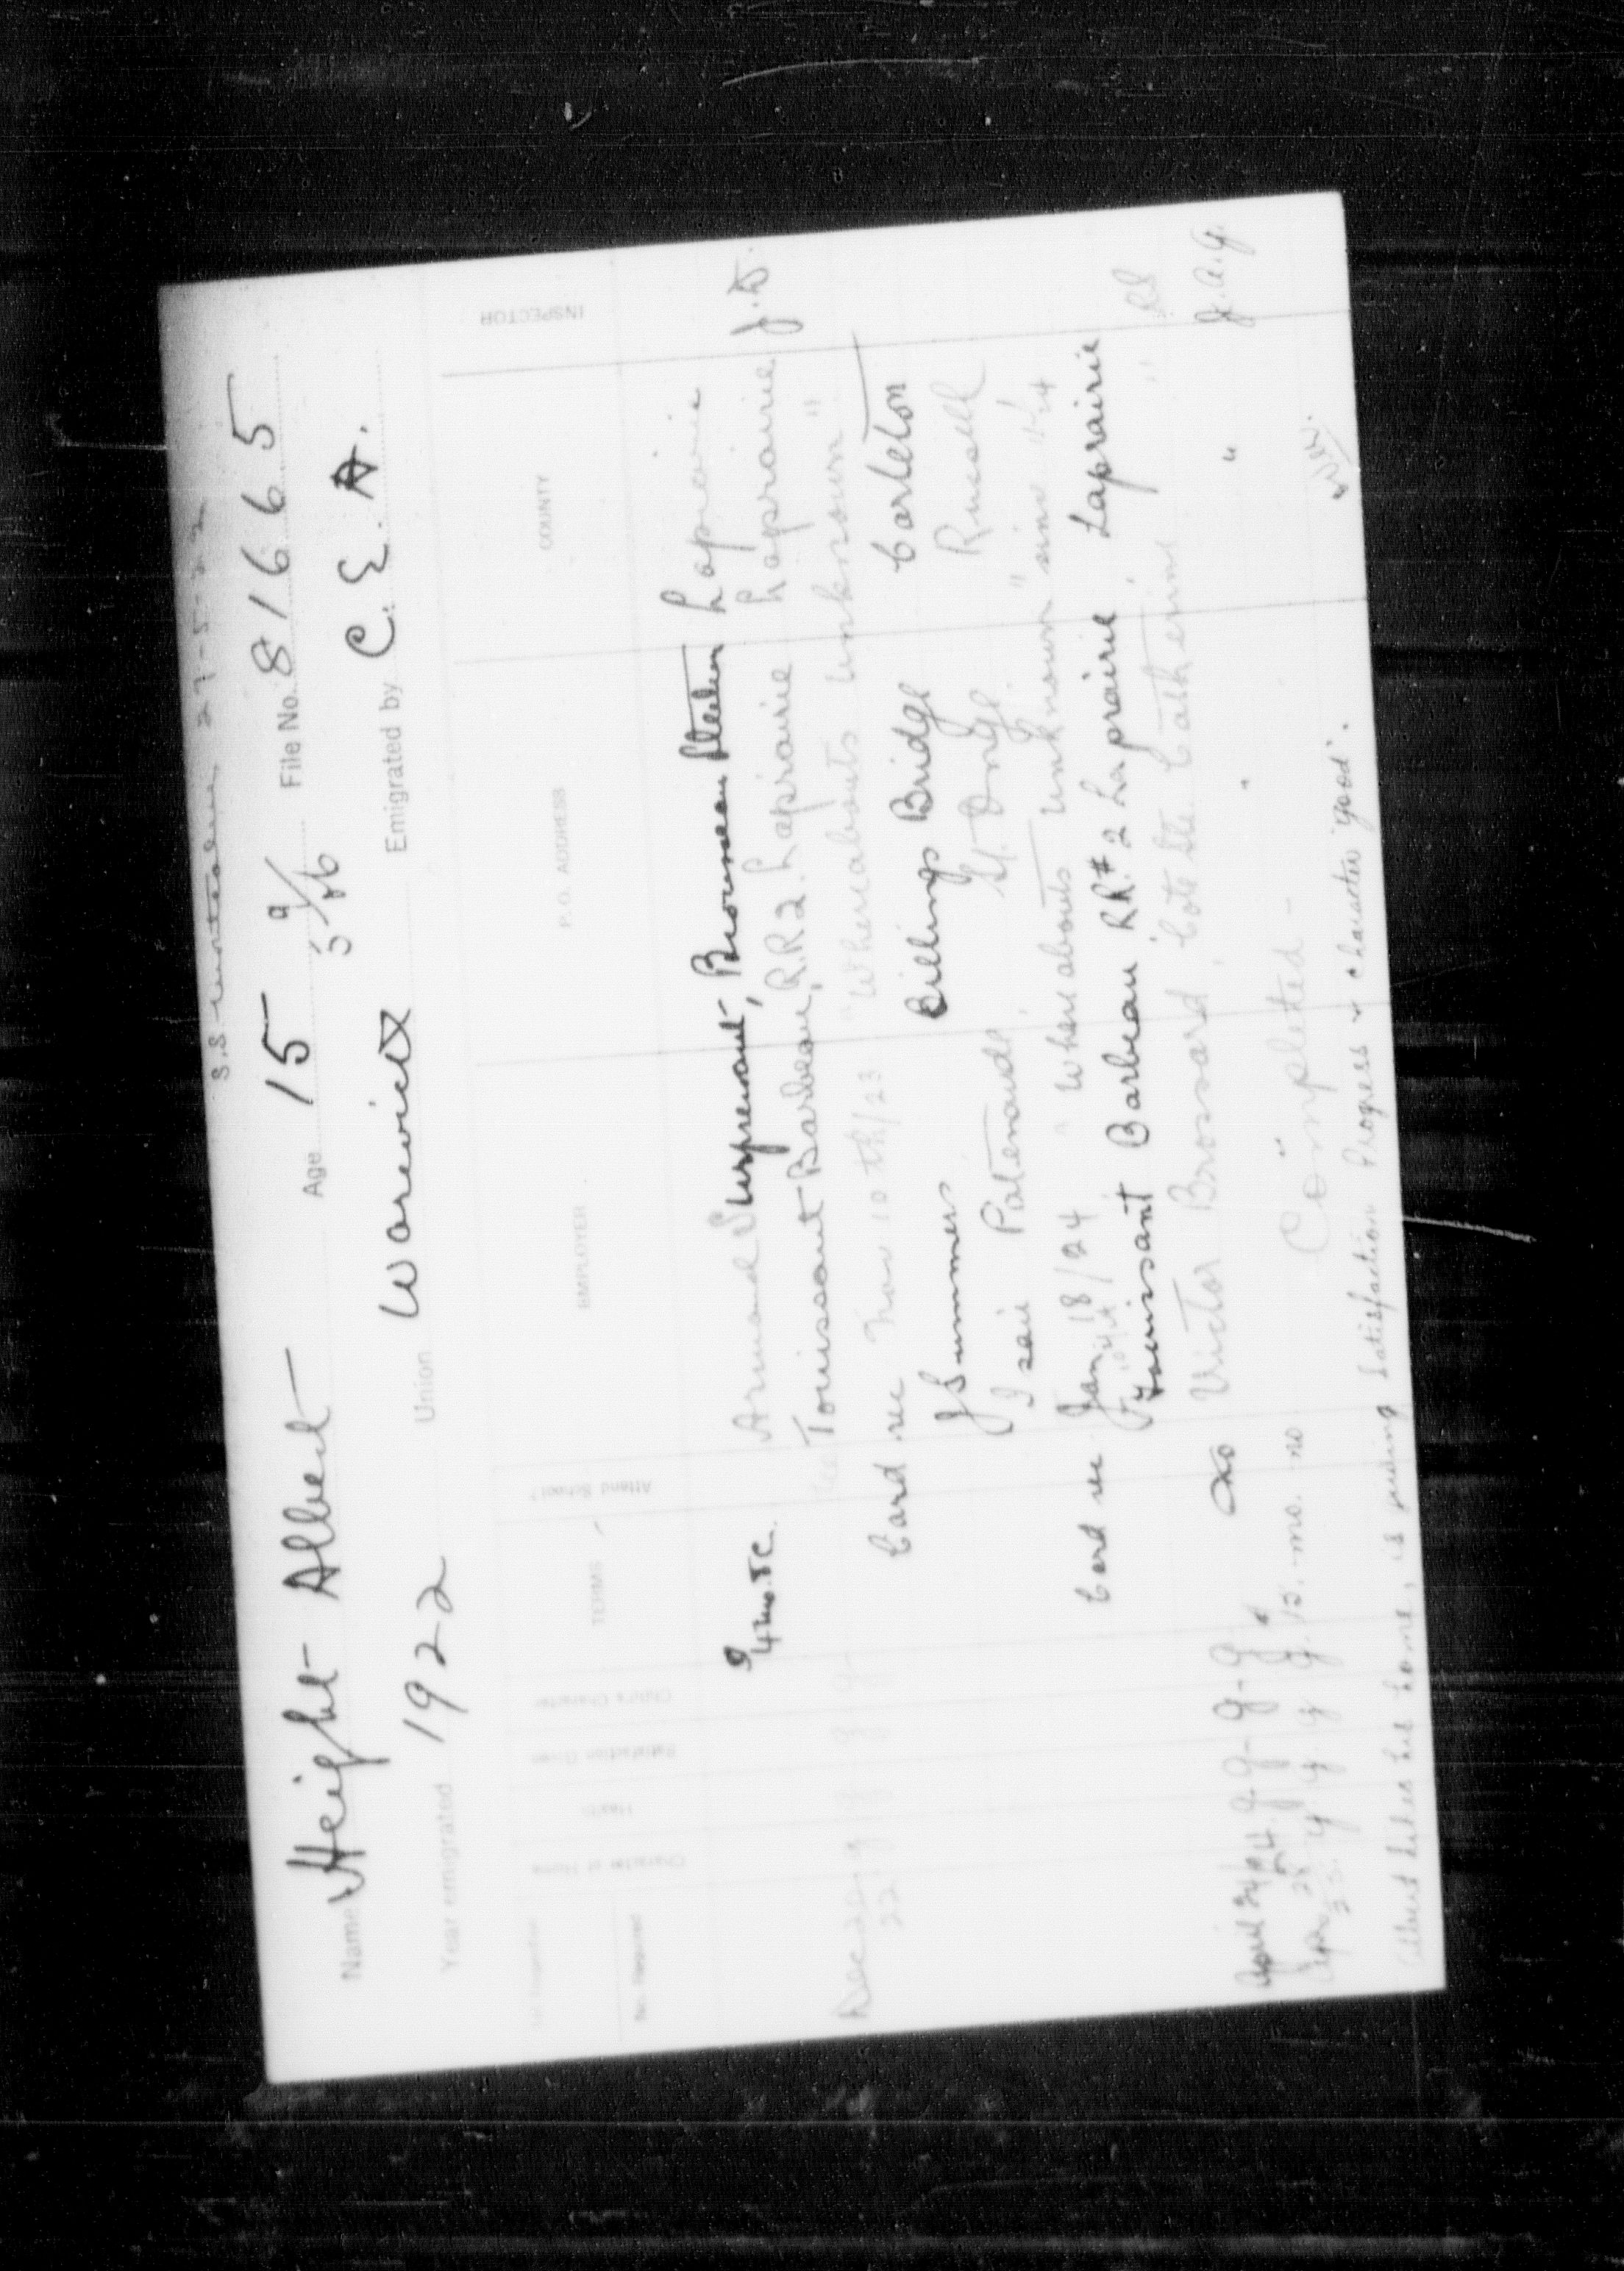 S.S. Montcalm 27-5-22
Name Height Albert Age 15 9/5/06 File No. 81665
Year emigrated 1922 Union Warwick Emigrated by C. E. A.
No. Required Character of Home Health Satisfaction Given Child's Character TERMS Attend School? EMPLOYER P.O. ADDRESS COUNTY INSPECTOR
Armand Surprenant, Brousseau Laprairie
Dec 22 Touissant Barbeau, R.R 2. Laprairie Laprairie J.W.
Card rec Nov 10th/23 "Whereabouts unknown"
J Summers Billings Bridge Carleton
Isaie Patenaude, St. Onge Russell
Card rec Jan 18/24 "Whereabouts unknown" since
Touissant Barbeau RR.# 2 Laprairie, Laprairie
Victor Brossard, Cote Ste. Catherine "
April 24 g - g - g - g " J.A.G.
g g g g 15.- mo. no Completed -
Albert likes his home, is giving satisfaction Progress & character "good".